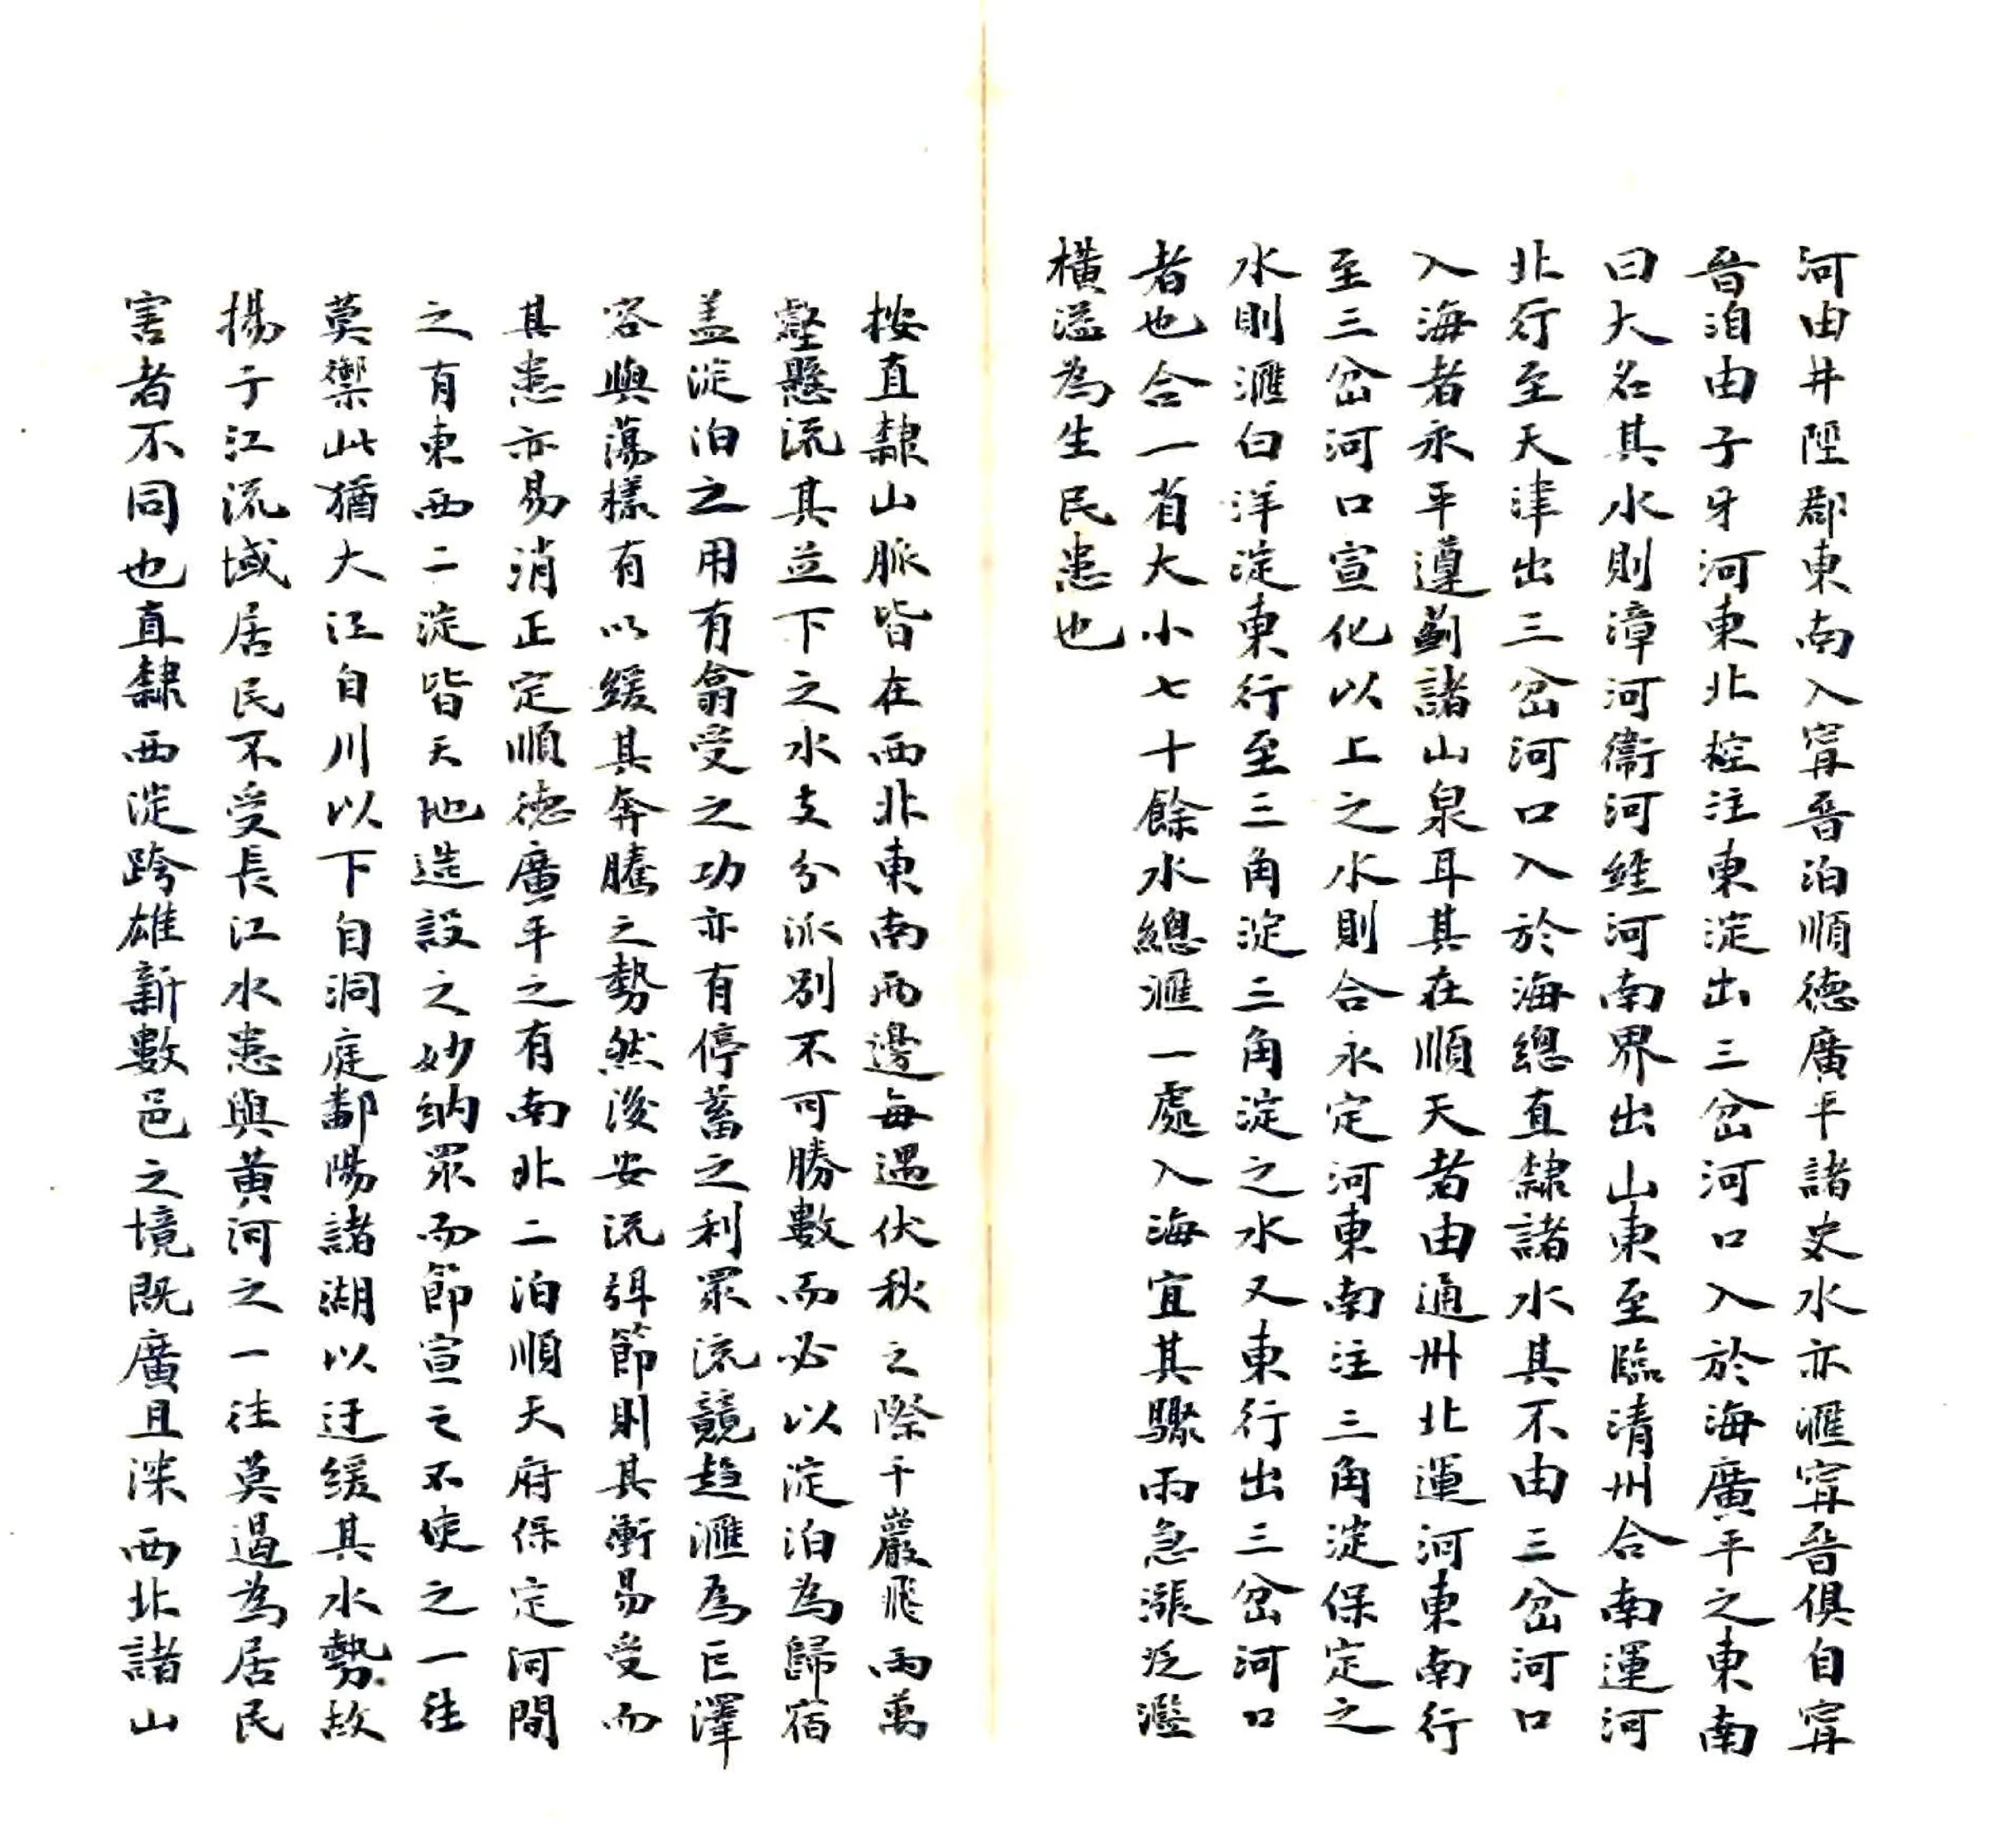 河由井陘郡東南入寗晉泊順德廣平諸史水亦滙寗晉俱自寗
晉泊由子牙河東北控注東淀出三岔河口入於海廣平之東南
曰大名其水則漳河衞河經河南界出山東至臨清州合南運河
北行至天津出三岔河口入於海總直隸諸水其不由三岔河口
入海者永平遵薊諸山泉耳其在順天者由通州北運河東南行
至三岔河口宣化以上之水則合永定河東南注三角淀保定之
水則滙白洋淀東行至三角淀三角淀之水又東行出三岔河口
者也合一省大小七十餘水總滙一處入海宜其驟雨急漲泛濫
橫溢為生民患也
按直隸山脈皆在西北東南兩邊每遇伏秋之際千巖飛雨萬
壑懸流其並下之水支分派别不可勝數而必以淀泊為歸宿
盖淀泊之用有翕受之功亦有停蓄之利眾流競趋滙為巨澤
容與蕩樣有以緩其奔騰之勢然後安流弭節則其衝易受而
其患亦易消正定順德廣平之有南北二泊順天府保定河間
之有東西二淀皆天地造設之妙納眾而節宣之不使之一往
莫禦此猶大江自川以下自洞庭鄱陽諸湖以迂緩其水勢故
揚于江流域居民不受長江水患與黄河之一往莫過為居民
害者不同也直隸西淀跨雄新數邑之境既廣且深西北諸山